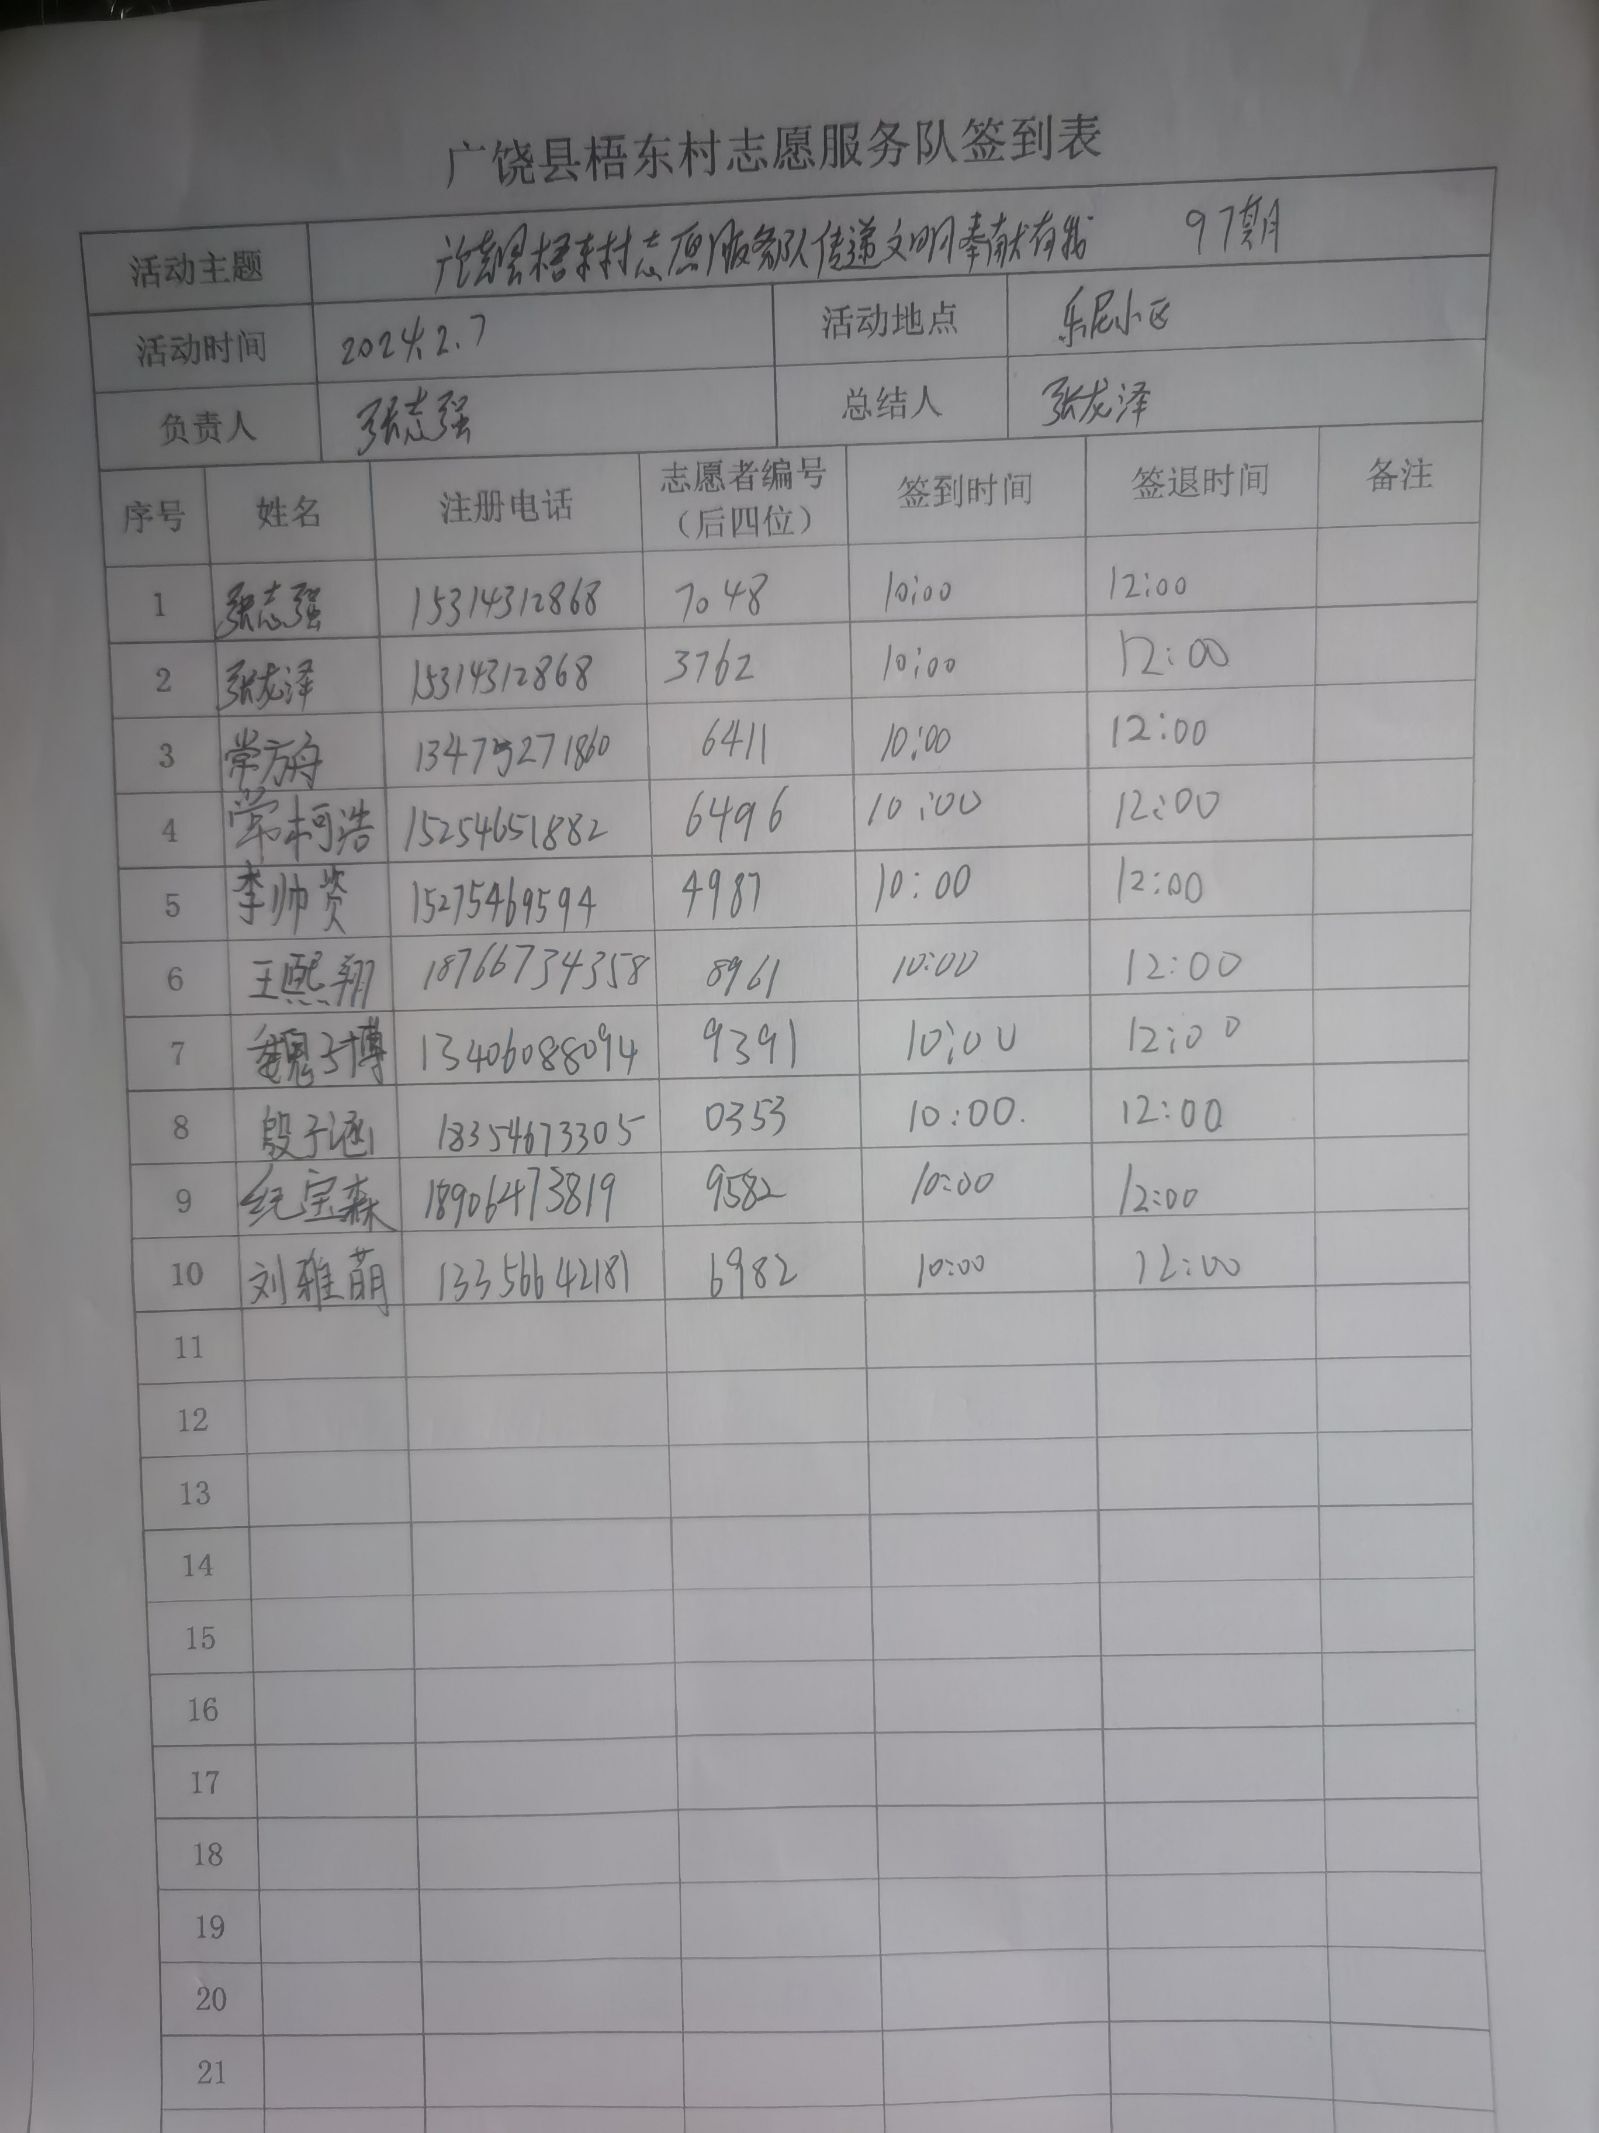 广饶县梧东村志愿服务队签到表
活动主题 广饶县梧东村志愿服务队传递文明奉献有我 97期
活动时间 2024.2.7 活动地点 乐尼小区
负责人 张志强 总结人 张龙泽
序号 姓名 注册电话 志愿者编号（后四位） 签到时间 签退时间 备注
1 张志强 15314312868 7048 10:00 12:00
2 张龙泽 15314312868 3762 10:00 12:00
3 常方舟 13475271860 6411 10:00 12:00
4 常柯浩 15254651882 6496 10:00 12:00
5 李帅资 15275469594 4987 10:00 12:00
6 王熙翔 18766734358 8961 10:00 12:00
7 魏子博 13406088094 9391 10:00 12:00
8 殷子涵 18354673305 0353 10:00. 12:00
9 纪宝森 18906473819 9582 10:00 12:00
10 刘雅萌 13356642181 6982 10:00 12:00
11
12
13
14
15
16
17
18
19
20
21